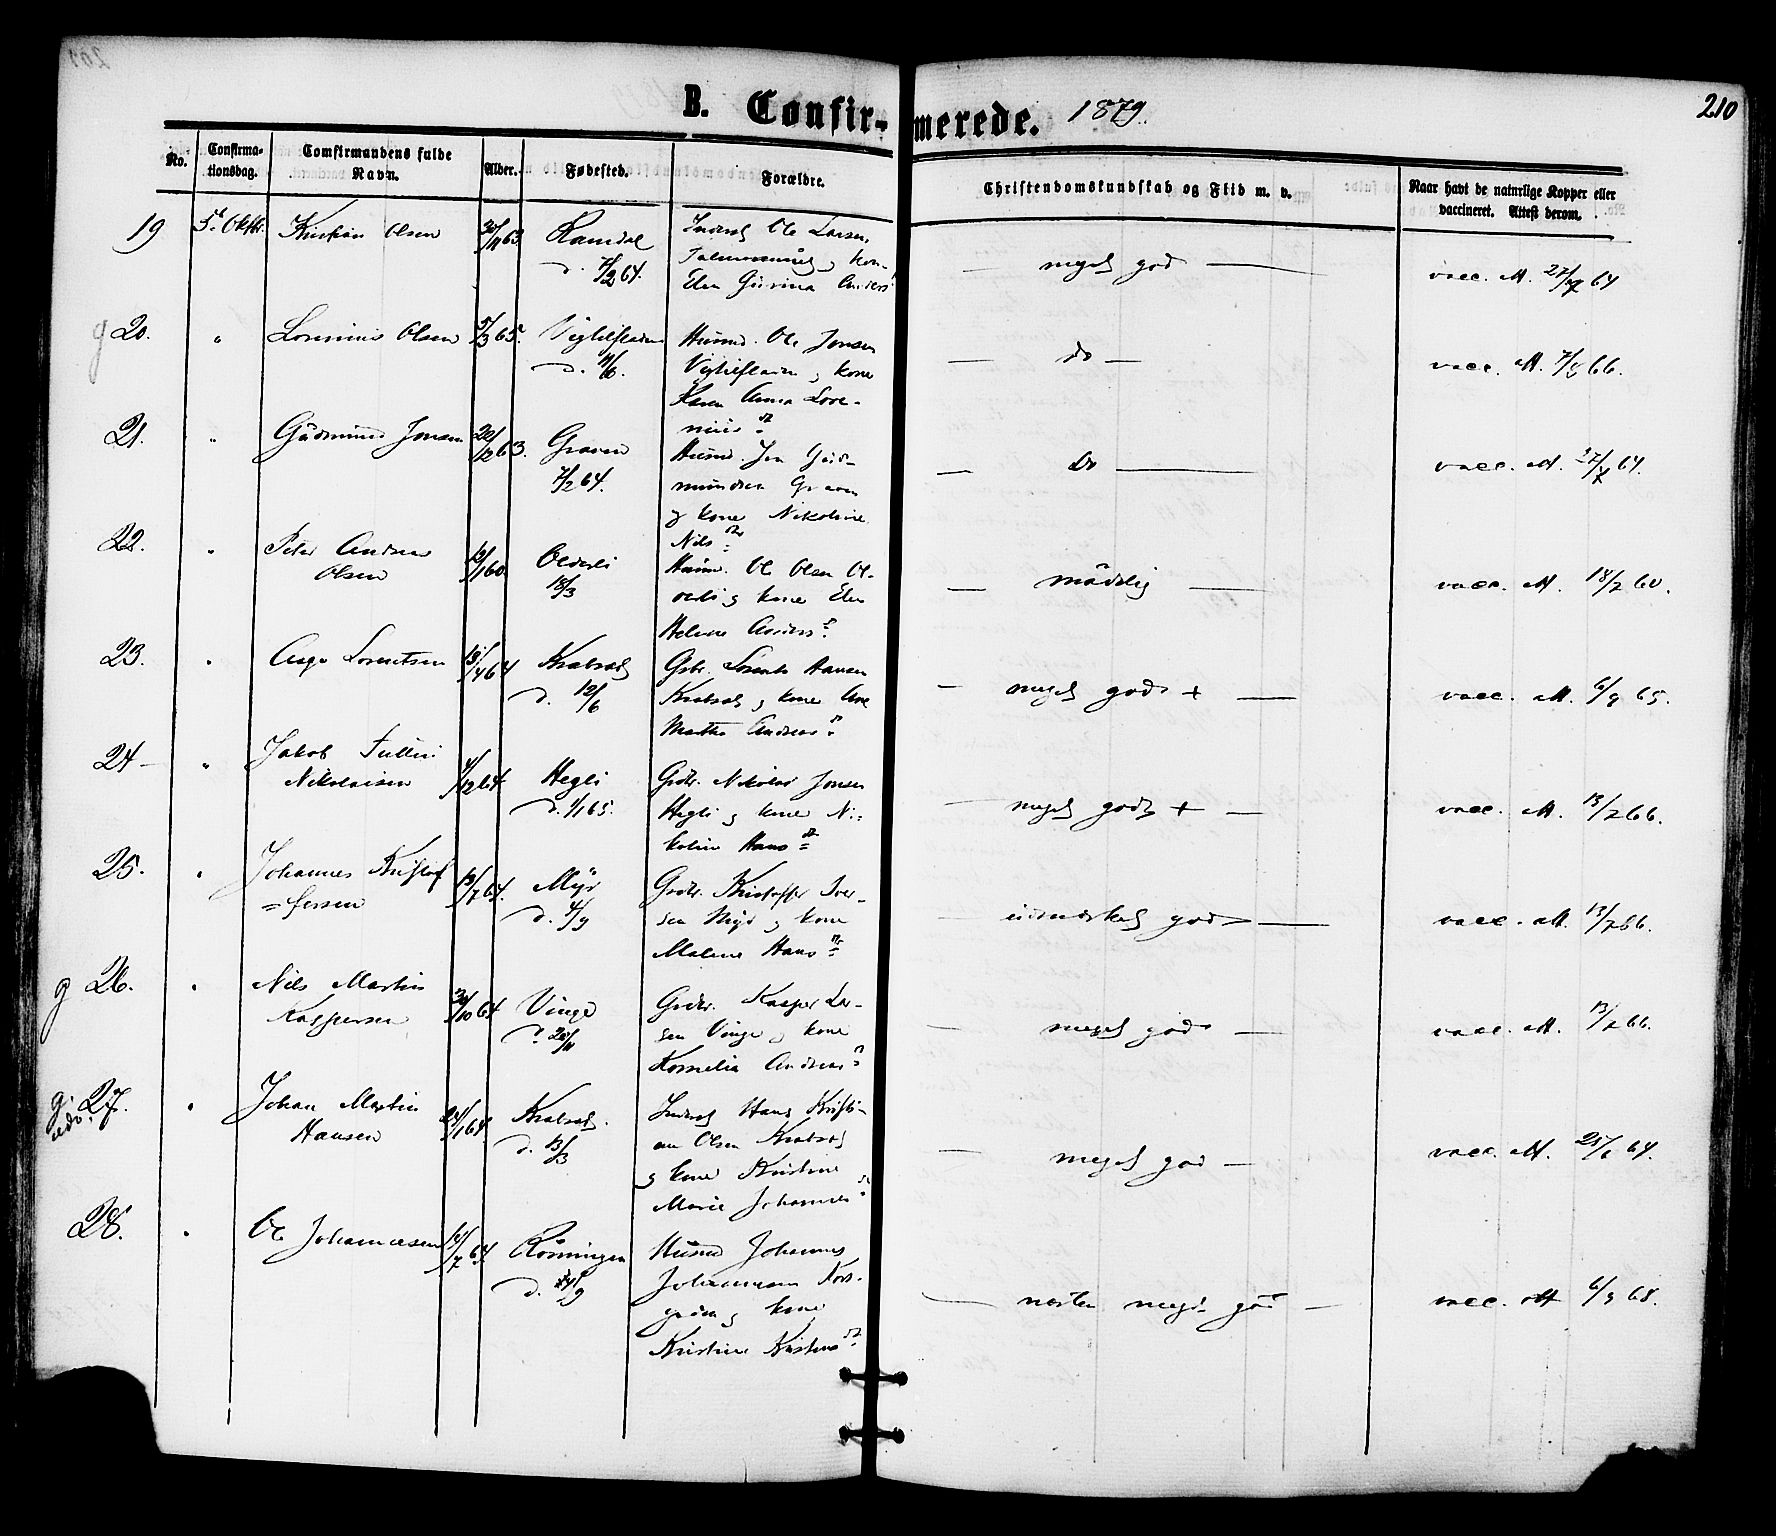 B. Confirmerede. 1879.
210
No.
Confirmationsdag.
Comfirmandens fulde Navn.
Alder.
Fødested.
Forældre.
Christendomskundskab og Flid m. v.
Naar havt de naturlige Kopper eller vaccineret. Attest derom.
19 5t Oktbr. Kristian Olsen 30/11 63 Ramdal d. 7/2 64.
Inderst Ole Larsen
og kone
Elen Gurina Anders
meget god vacc. att. 64
g 20. " Lorenius Olsen 5/3 65.
d.
Husmd. Ole Jonsen
og kone
Karen Anna Lorenius dt
do vacc. att. 66.
21. " Gudmund Jonsen 20/12 63. Graven 7/2 64.
Husmd. Jon Gudmundsen Graven
og kone Nikoline
Nils dtr
do vacc. att. 27/7 64.
22. " Peter Andreas Olsen 12/1 60 Olderli 18/3
Husm. Ole Olsen Olderli og kone Elen
Helene Anders dt
mådelig vacc. att. 18/7 60.
23. " Aage Lorentsen 13/4 64 Krabsat d. 12/6
Gbr. Lorents Hansen
Krabsat og kone Ane
Martha Andreas dt
meget god + vacc. att. 6/9 65.
24 - " Jakob
Nikolaisen 4/12 64 Hegli d. 1/1 65.
Grdbr. Nikolai Jonsen
Hegli og kone Nikoline Hans dt
meget god + vacc. att. 13/7 66.
25. " Johannes Kristoffersen 13/7 64. Myr d. 4/9
Grdbr. Kristoffer Iversen Myr og kone
Malene Hans dtr
udmærket god vacc. att. 13/7 66.
g 26. " Nils Martin
Kaspersen 30/10 64 Vinge d. 20/11
Grdbr. Kasper Larsen Vinge og kone
Kornelia Andreas dt
meget god vacc. att. 13/7 66.
g. 27. " Johan Martin
Hansen 24/1 64 Krabsat. d. 13/3
Inderst Hans Kristian Olsen Krabsat
og kone Kristine
Marie Johannes dt
meget god vacc. att. 64.
28. " Ole Johannesen 14/7 64. Rönningen d.
Husmd Johannes
Johannesen
og kone
Kristine Kristens dt
næsten meget god vacc. att 6/9 68.